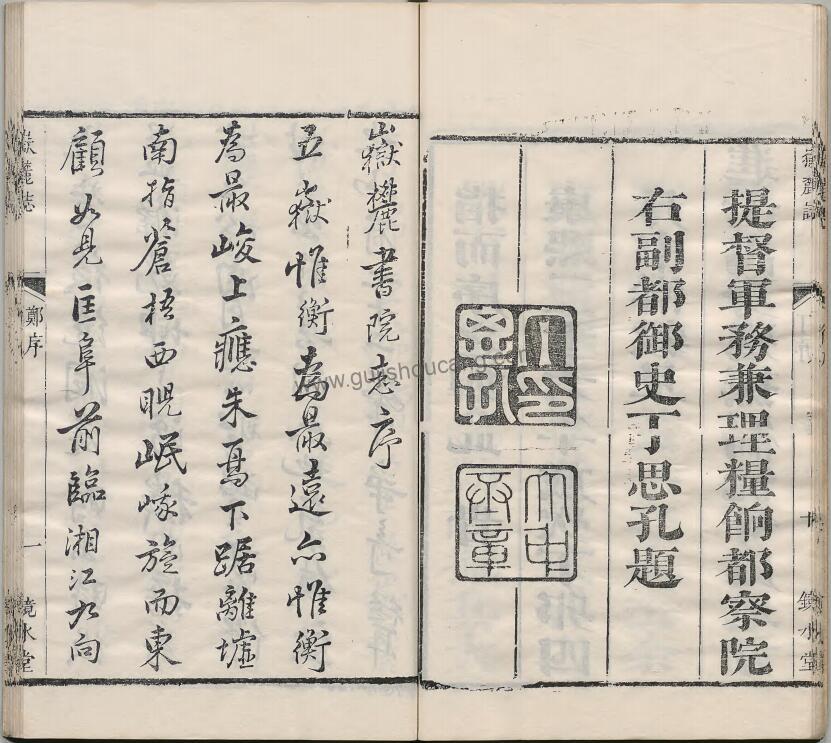 提督軍務兼理糧餉都察院
右副都御史丁思孔題
嶽麓書院志序
五嶽惟衡為最遠亦惟衡
為最峻上應朱鳥下踞離墟
南指蒼梧西睨岷峨旋而東
顧如見匡阜前臨湘江九向
嶽麓志
鄭序
一
鏡水堂
嶽麓志
鏡水堂
www.gujishoucang.com